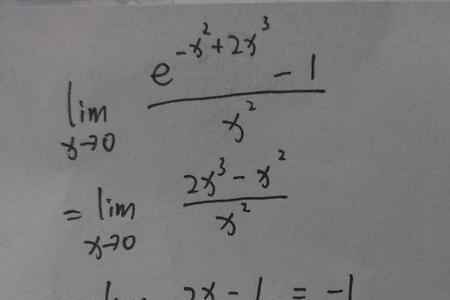 lim_{x→0} (e^{-x^2+2x^3} - 1) / x^2
= lim_{x→0} (2x^3 - x^2) / x^2
2x - 1 = -1